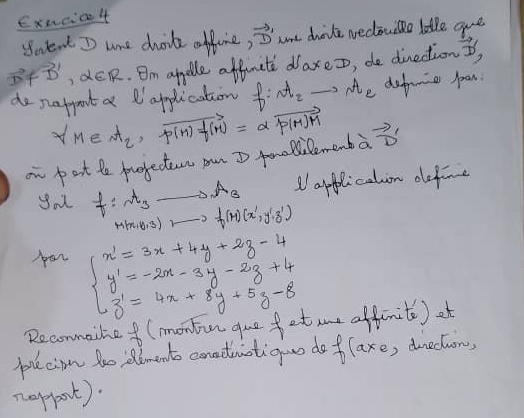 Exercice 4
Soient D une droite affine, D⃗' une droite vectorielle telle que
D⃗ ≠ D⃗', α∈R. On appelle affinité d'axe D, de direction D⃗',
de rapport α l'application f: A₂ → A₂ définie par:
∀ M ∈ A₂, p(M) f(M) = α p(M)M
où p est le projecteur sur D parallèlement à D⃗'
Soit f: A₃ → A₃ l'application définie
M(x,y,z) ↦ f(M)(x',y',z')
par { x' = 3x + 4y + 2z - 4
y' = -2x - 3y - 2z + 4
z' = 4x + 8y + 5z - 8
Reconnaitre f (montrer que f est une affinité) et
préciser les éléments caractéristiques de f (axe, direction,
rapport).